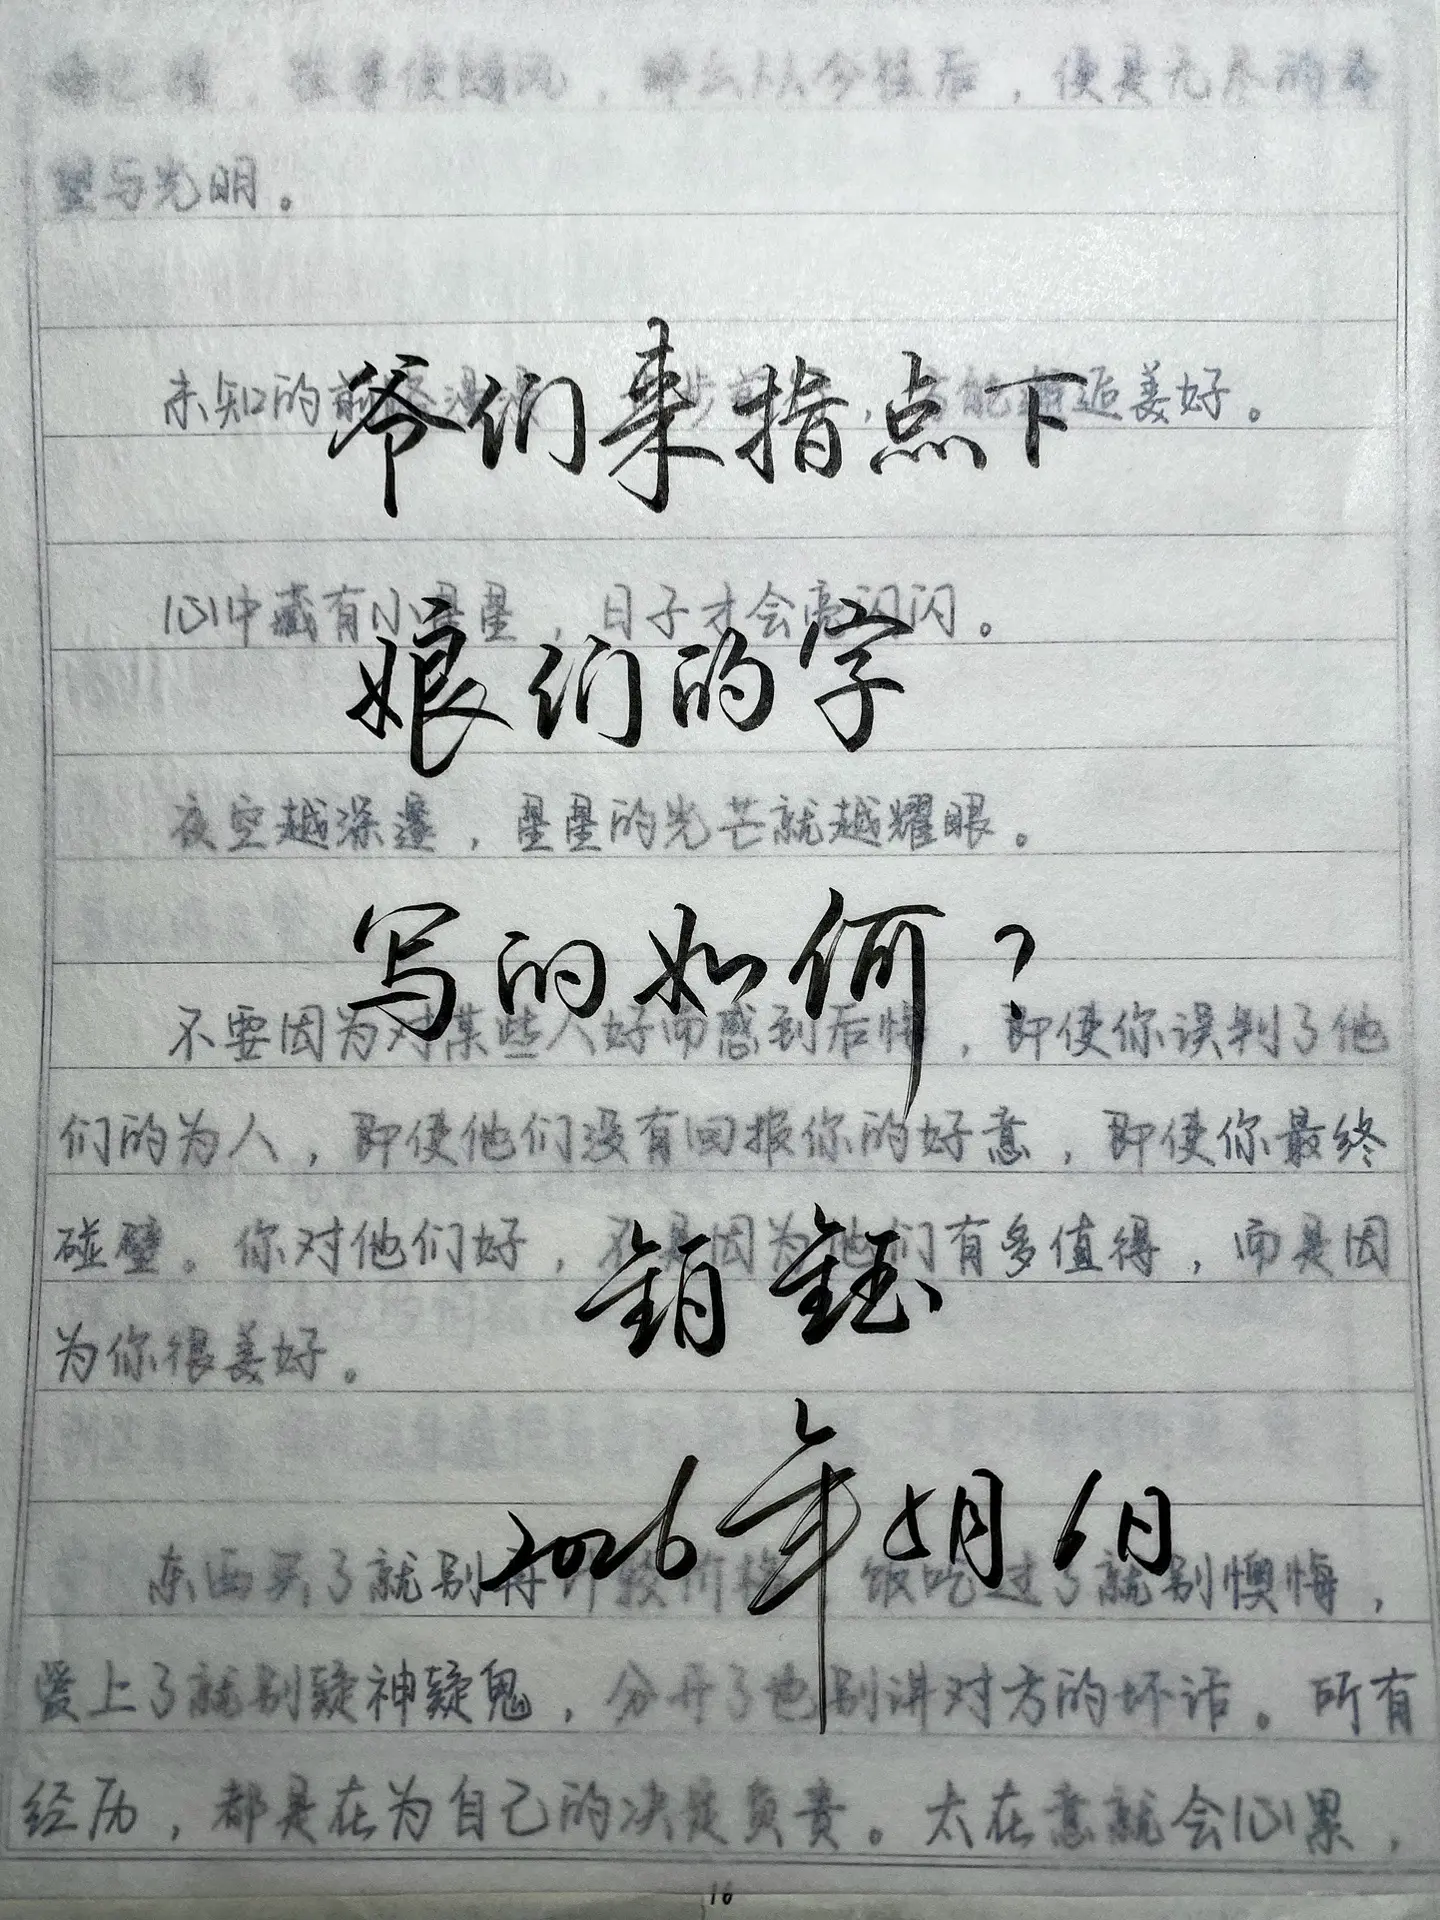 便是无尽的希
望与光明。
爷们来指点下
未知的前路漫漫
，方能邂逅美好。
心中藏有小星星，日子才会亮闪闪。
娘们的字
夜空越深邃，星星的光芒就越耀眼。
写的如何？
不要因为对某些人好而感到后悔，即使你误判了他
们的为人，即使他们没有回报你的好意，即使你最终
碰壁。你对他们好，不是因为他们有多值得，而是因
为你很美好。
2026年5月6日
东西买了就别再计较价格，饭吃过了就别懊悔，
爱上了就别疑神疑鬼，分开了也别讲对方的坏话。所有
经历，都是在为自己的决定负责。太在意就会心累，
16